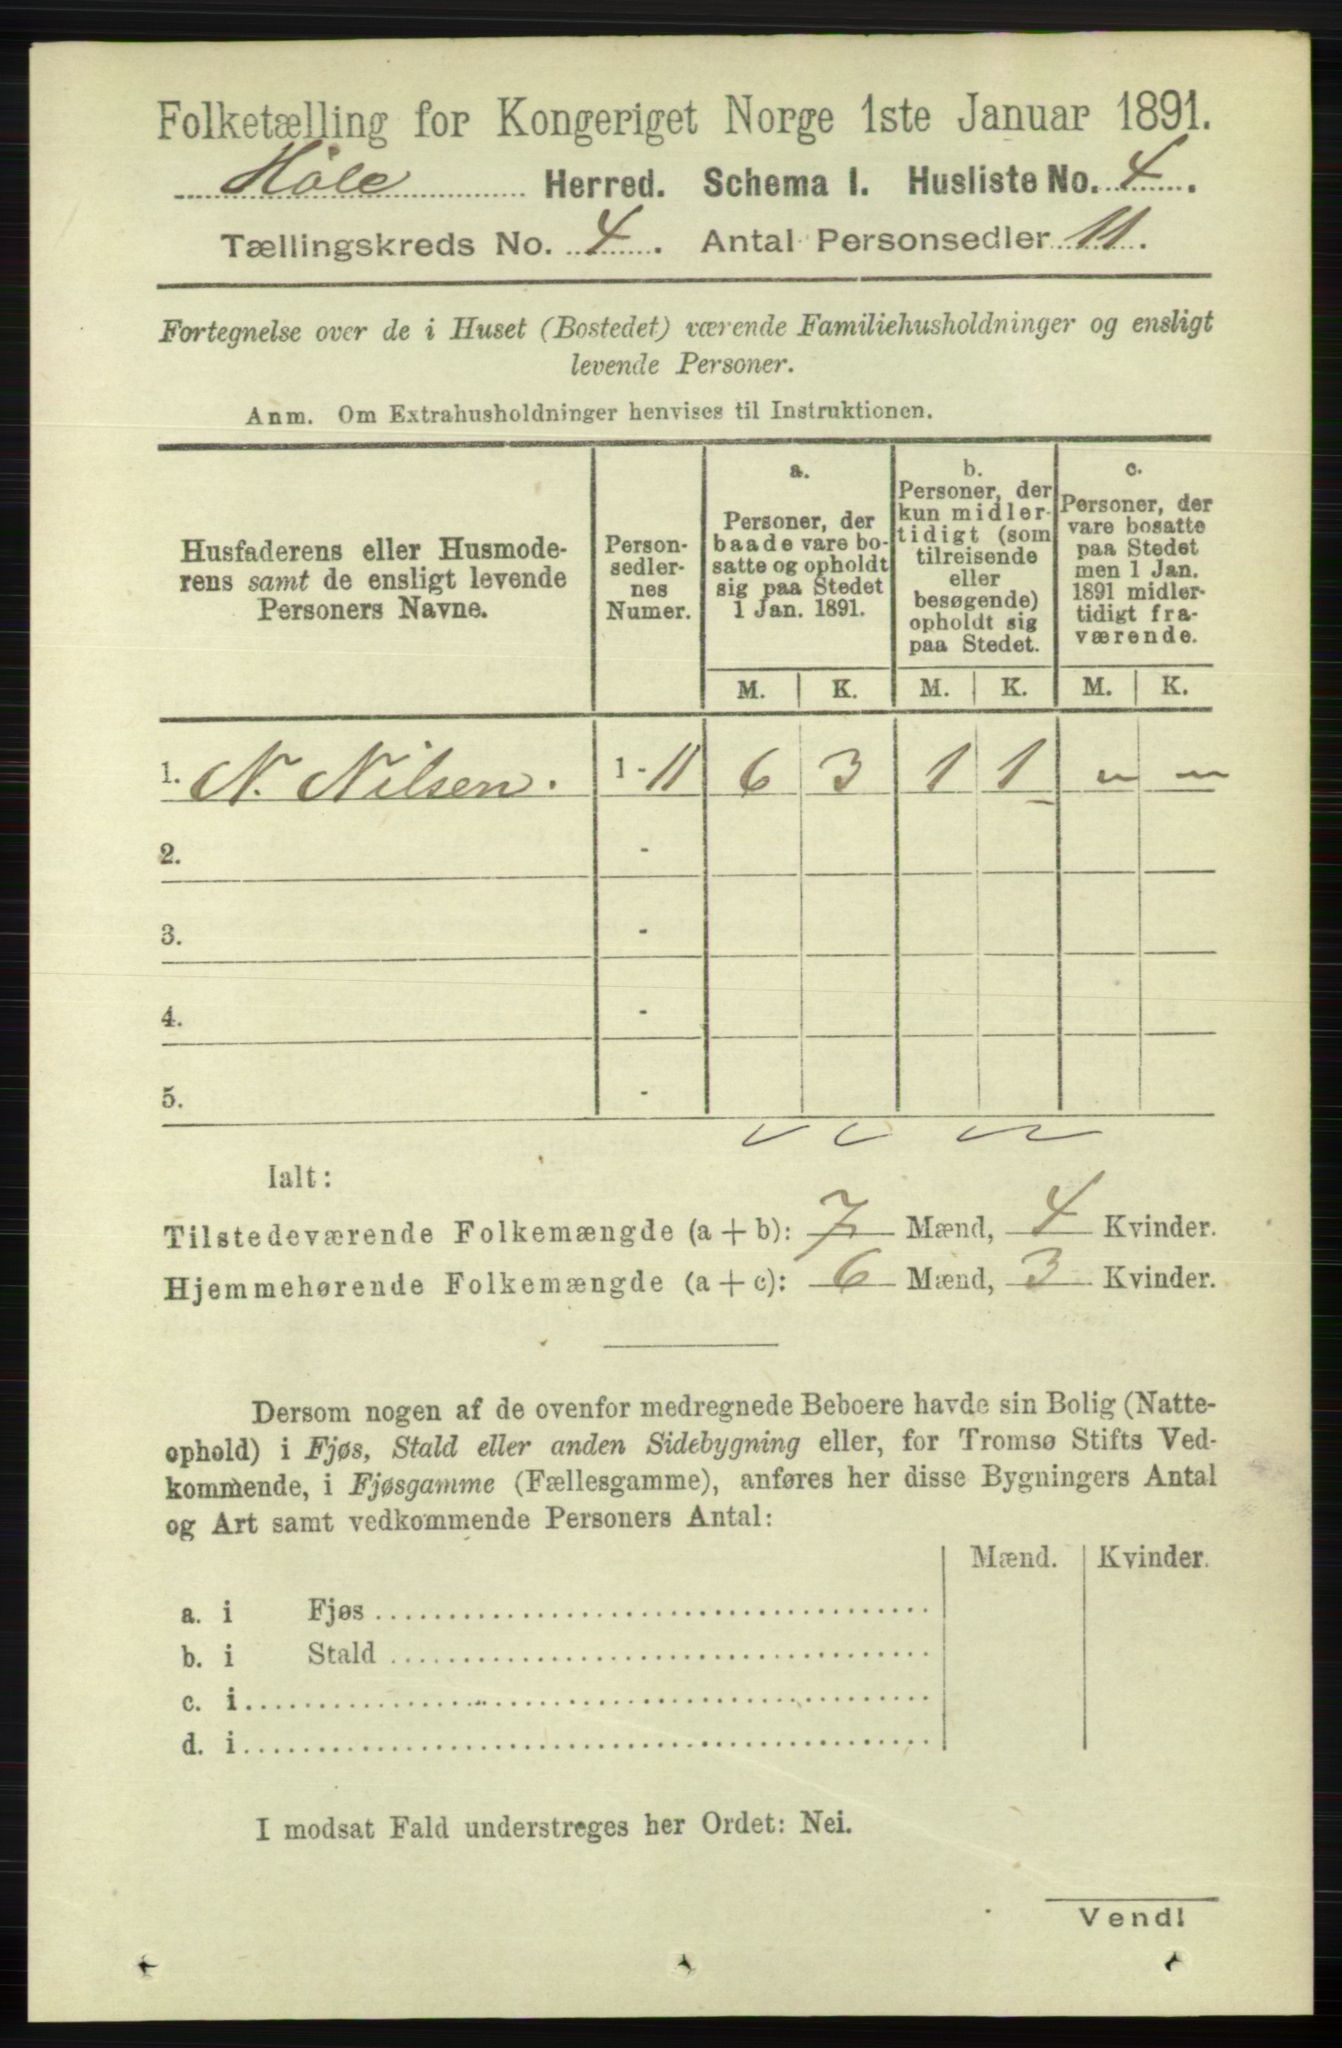 Folketælling for Kongeriget Norge 1ste Januar 1891.
Høle Herred. Schema I. Husliste No. 4.
Tællingskreds No. 4. Antal Personsedler 11.
Fortegnelse over de i Huset (Bostedet) værende Familiehusholdninger og ensligt
levende Personer.
Anm. Om Extrahusholdninger henvises til Instruktionen.
Husfaderens eller Husmode-
rens samt de ensligt levende
Personers Navne.
Person-
sedler-
nes
Numer.
a.
Personer, der
baade vare bo-
satte og opholdt
sig paa Stedet
1 Jan. 1891.
b.
Personer, der
kun midler-
tidigt (som
tilreisende
eller
besøgende)
opholdt sig
paa Stedet.
c.
Personer, der
vare bosatte
paa Stedet
men 1 Jan.
1891 midler-
tidigt fra-
værende.
M. K. M. K. M. K.
1. N. Nilsen. 1 - 11 6 3 1 1 " "
2. -
3. -
4. -
5. -
Ialt:
Tilstedeværende Folkemængde (a + b): 7 Mænd, 4 Kvinder.
Hjemmehørende Folkemængde (a + c): 6 Mænd, 3 Kvinder.
Dersom nogen af de ovenfor medregnede Beboere havde sin Bolig (Natte-
ophold) i Fjøs, Stald eller anden Sidebygning eller, for Tromsø Stifts Ved-
kommende, i Fjøsgamme (Fællesgamme), anføres her disse Bygningers Antal
og Art samt vedkommende Personers Antal:
Mænd. Kvinder.
a. i Fjøs
b. i Stald
c. i
d. i
I modsat Fald understreges her Ordet: Nei.
Vend!